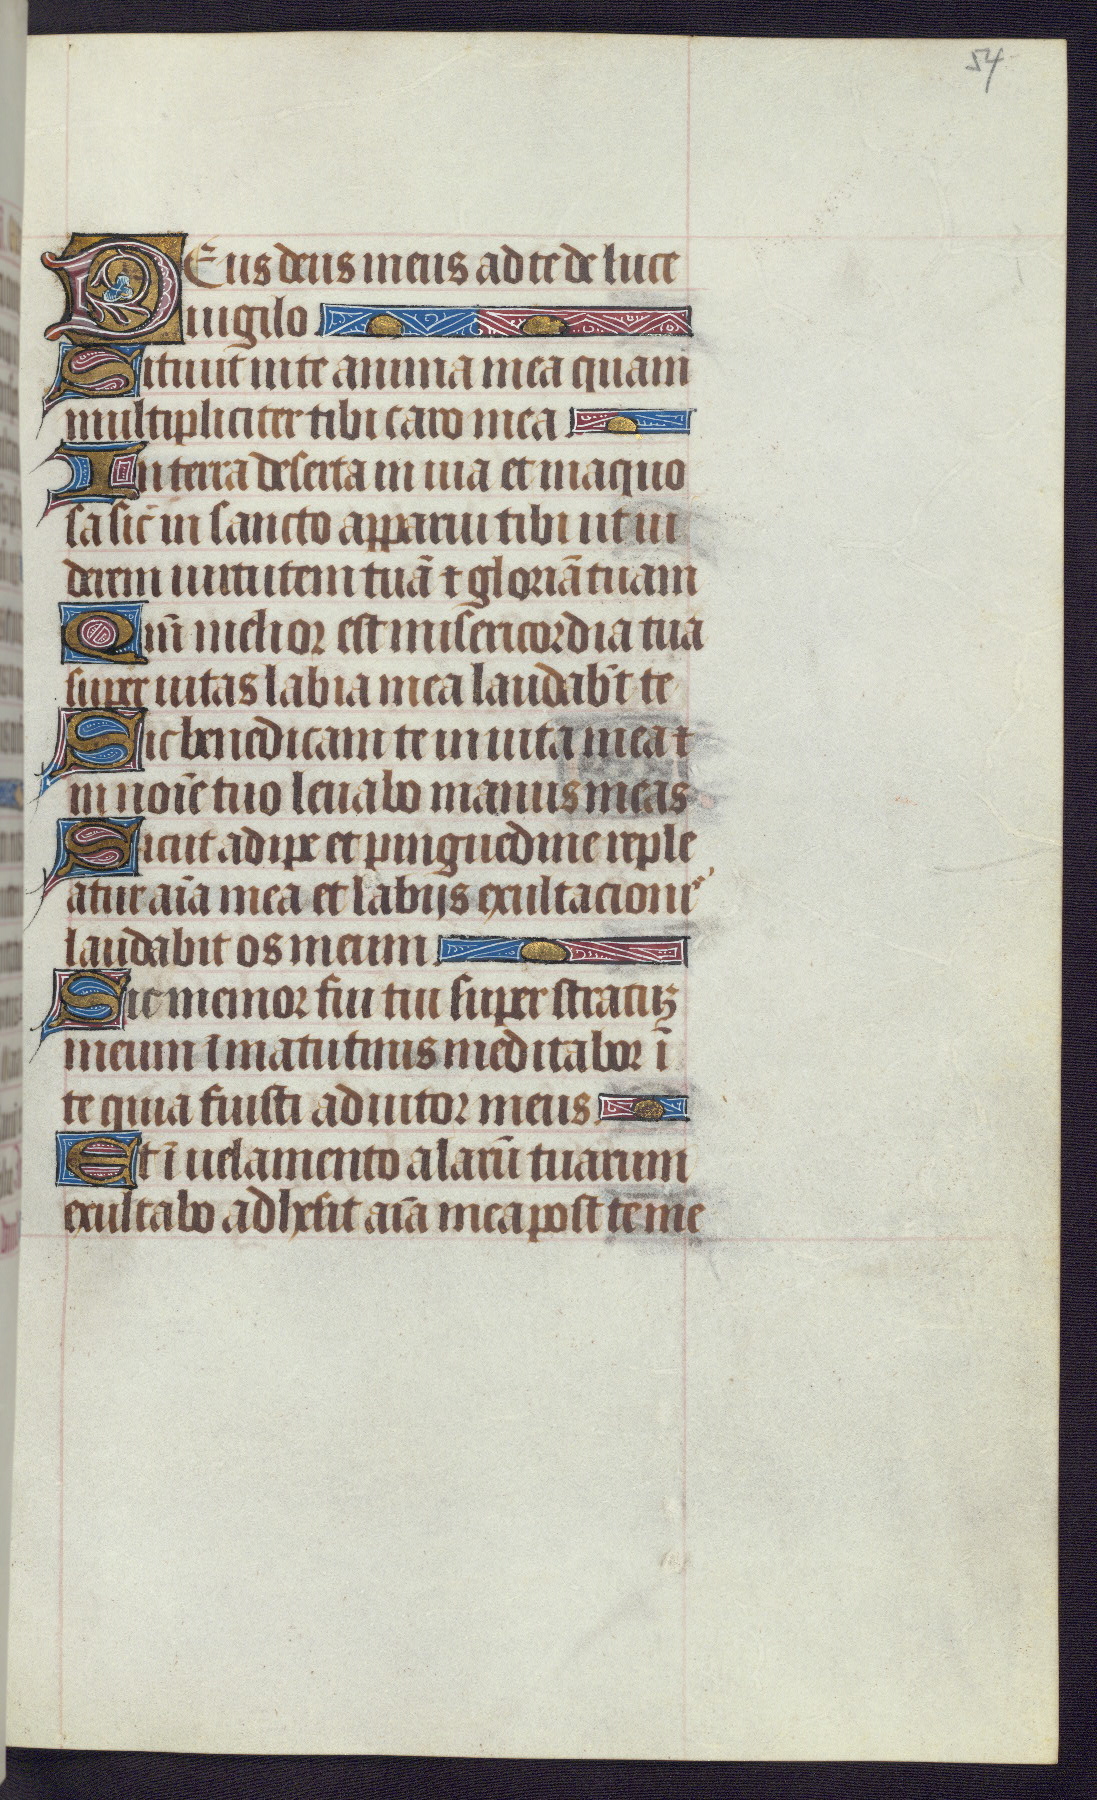 54
Deus deus meus ad te de luce
uigilo
Sitiuit in te anima mea quam
multipliciter tibi caro mea
In terra deserta in uia et inaquo
sa sic̄ in sancto apparui tibi ut ui
derem uirtutem tuā ⁊ gloriā tuam
Qm̄ melior est misericordia tua
super uitas labia mea laudabūt te
Sic benedicam te in uita mea ⁊
in noīe tuo leuabo manus meas
Sicut adipe et pinguedine reple
atur aīa mea et labijs exultacionis
laudabit os meum
Sic memor fui tui super stratuꝫ
meum ī matutinis meditabor ī
te quia fuisti adiutor meus
Et ī uelamento alarū tuarum
exultabo adhesit aīa mea post te me